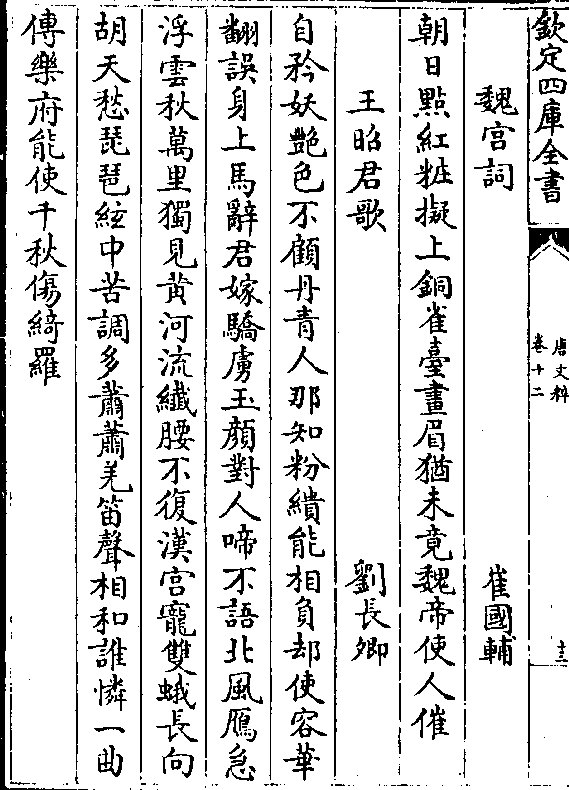 欽定四庫全書
唐文粹
卷十二
十三
魏宫詞
崔國輔
朝日點紅粧擬上銅雀臺畫眉猶未竟魏帝使人催
王昭君歌
劉長卿
自矜妖艷色不顧丹青人那知粉繢能相負却使容華
翻誤身上馬辭君嫁驕虜玉顔對人啼不語北風鴈急
浮雲秋萬里獨見黄河流纖腰不復漢宫寵雙蛾長向
胡天愁琵琶絃中苦調多蕭蕭羌笛聲相和誰憐一曲
傳樂府能使千秋傷綺羅